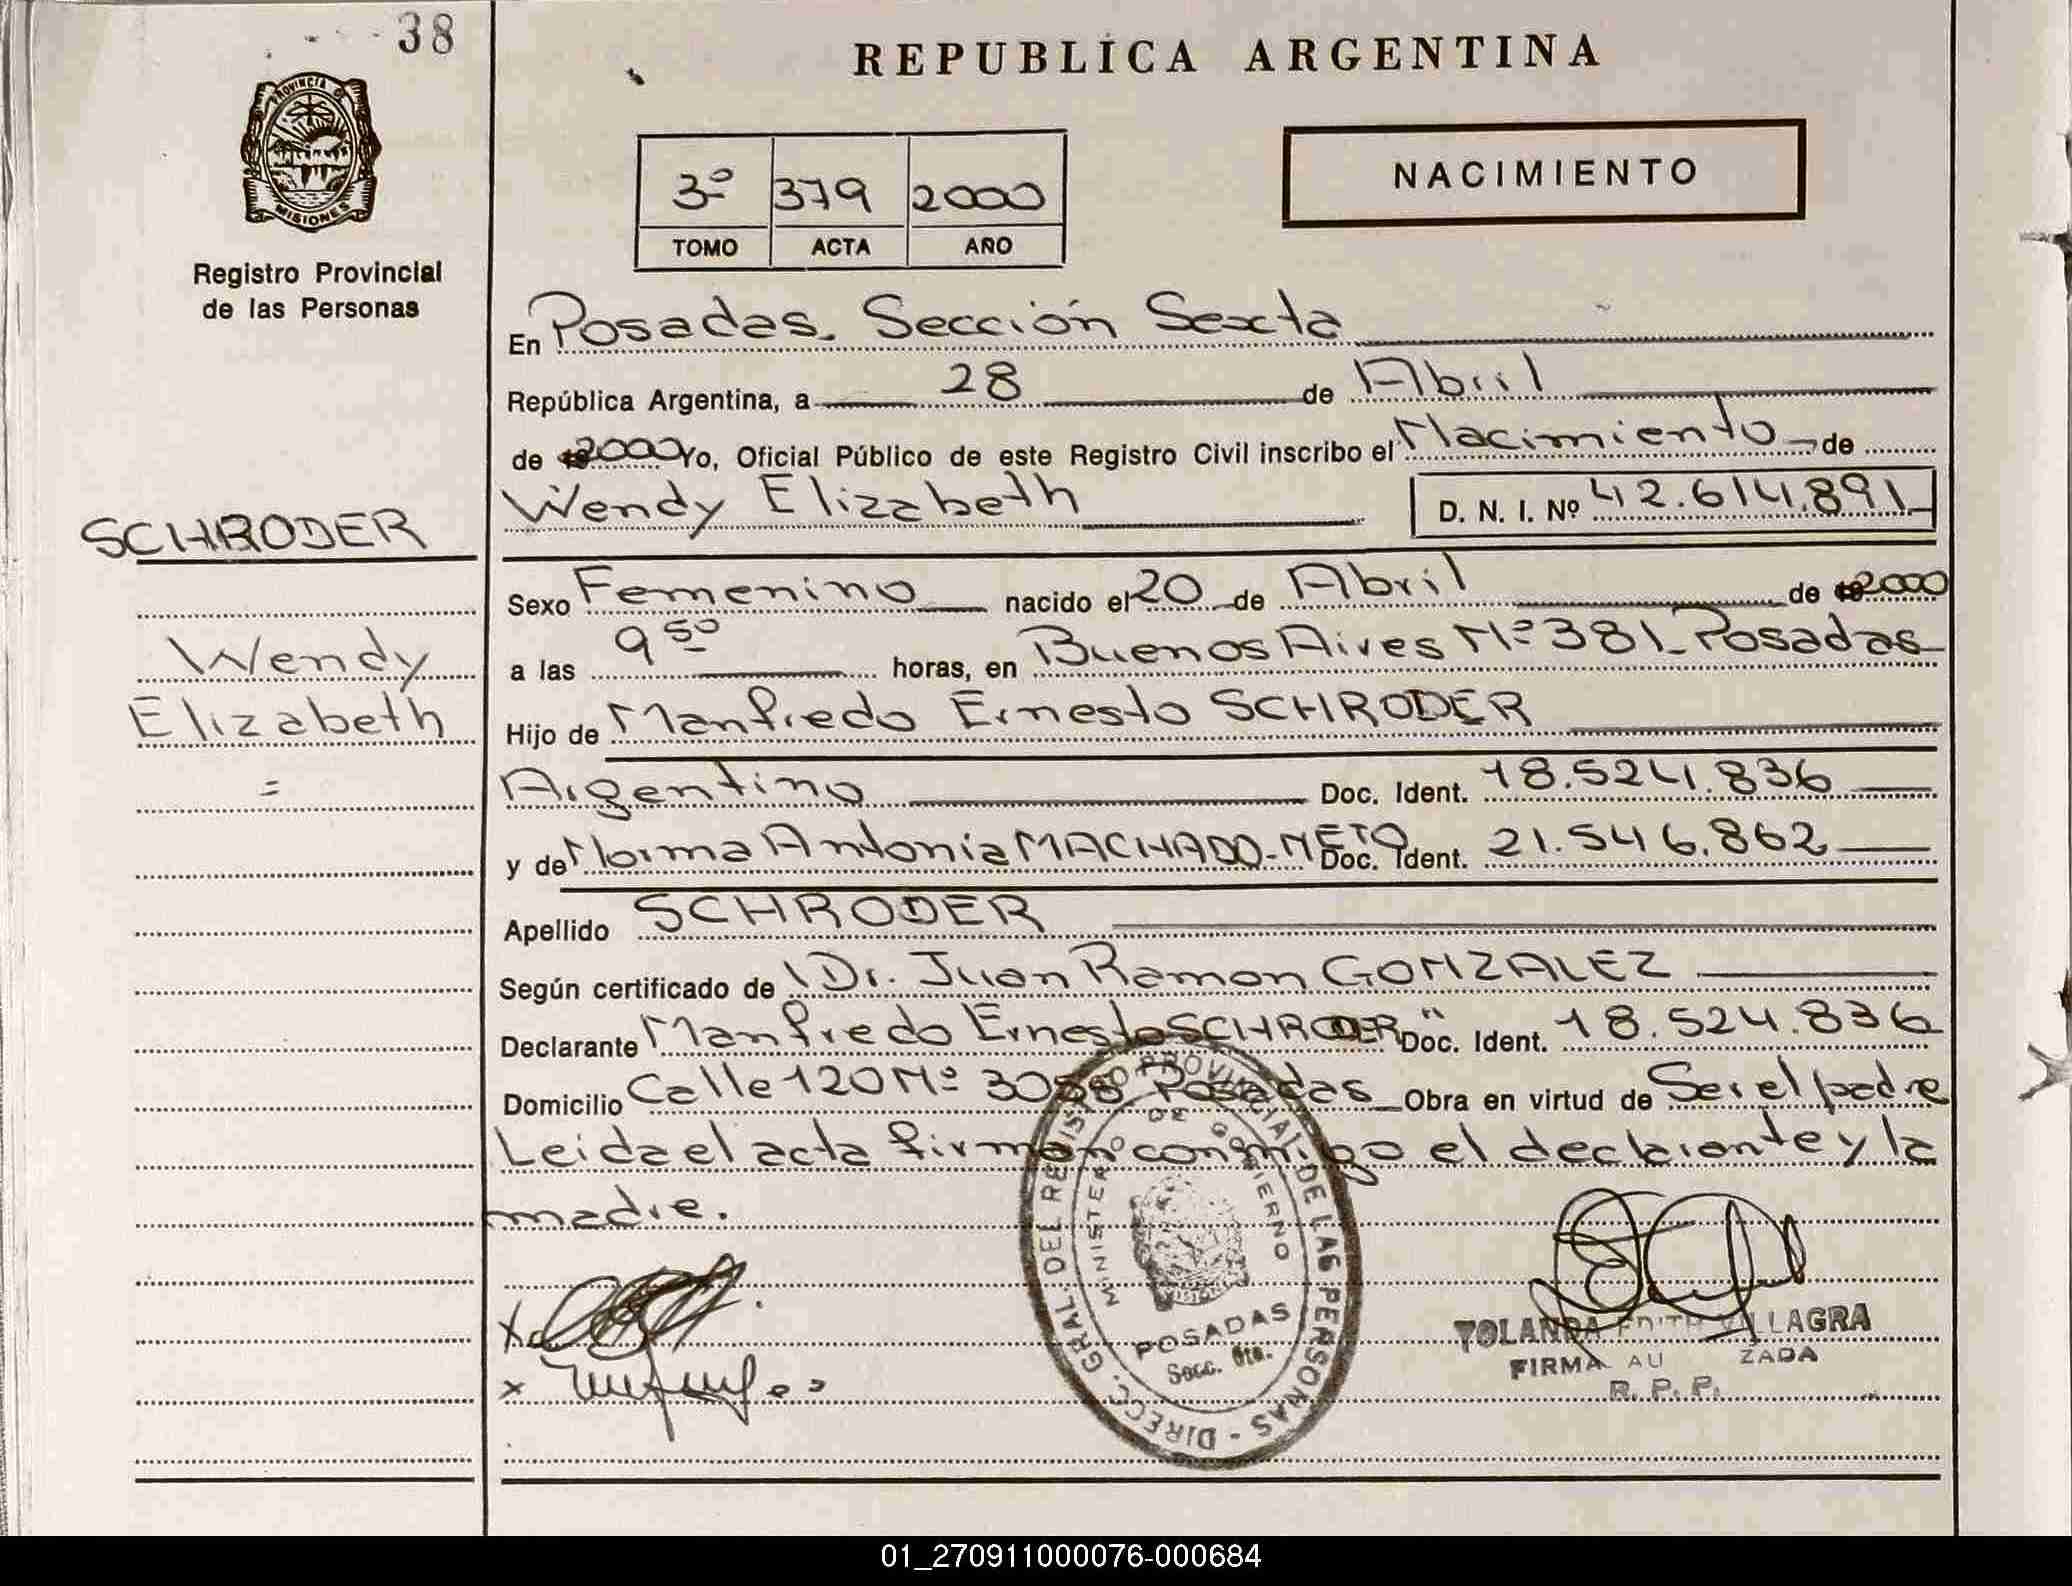 38
PROVINCIA DE
MISIONES
Registro Provincial
de las Personas
REPUBLICA ARGENTINA
3º 379 2000
TOMO ACTA AÑO
NACIMIENTO
En Posadas. Sección Sexta
República Argentina, a 28 de Abril
de 2000 Yo, Oficial Público de este Registro Civil inscribo el Nacimiento de
Wendy Elizabeth D. N. I. Nº 42.614.891
SCHRODER
Wendy
Elizabeth
=
Sexo Femenino nacido el 20 de Abril de 2000
a las 9 50 horas, en Buenos Aires Nº 381 Posadas
Hijo de Manfredo Ernesto SCHRODER
Argentino Doc. Ident. 18.524.836
y de Norma Antonia MACHADO-NETO Doc. Ident. 21.546.862
Apellido SCHRODER
Según certificado de Dr. Juan Ramon GONZALEZ
Declarante Manfredo Ernesto SCHRODER Doc. Ident. 18.524.836
Domicilio Calle 120 Nº 3058 Posadas Obra en virtud de Ser el padre
Leida el acta firman conmigo el declarante y la
madre.
DIRECC. GRAL. DEL REGISTRO PROVINCIAL DE LAS PERSONAS -
MINISTERIO DE GOBIERNO
MISIONES
POSADAS
Secc. 6ta.
YOLANDA EDITH VILLAGRA
FIRMA AU ZADA
R. P. P.
01_270911000076-000684